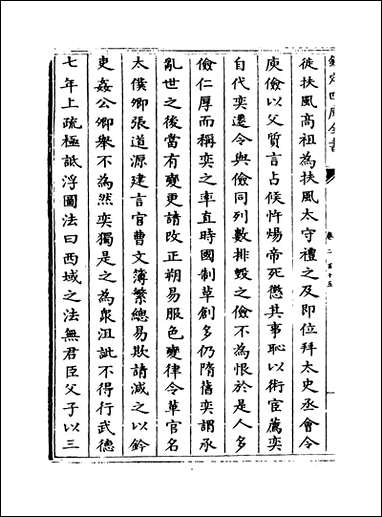 欽定四庫全書
卷二百十五
徙扶風高祖為扶風太守禮之及即位拜太史丞會令
庾儉以父質言占候忤煬帝死懲其事恥以術宦薦奕
自代奕遷令與儉同列數排毀之儉不為恨於是人多
儉仁厚而稱奕之率直時國制草創多仍隋舊奕謂承
亂世之後當有變更請改正朔易服色變律令革官名
太僕卿張道源建言官曹文簿繁總易欺請減之以鈐
吏姦公卿舉不為然奕獨是之為衆沮訿不得行武德
七年上疏極詆浮圖法曰西域之法無君臣父子以三